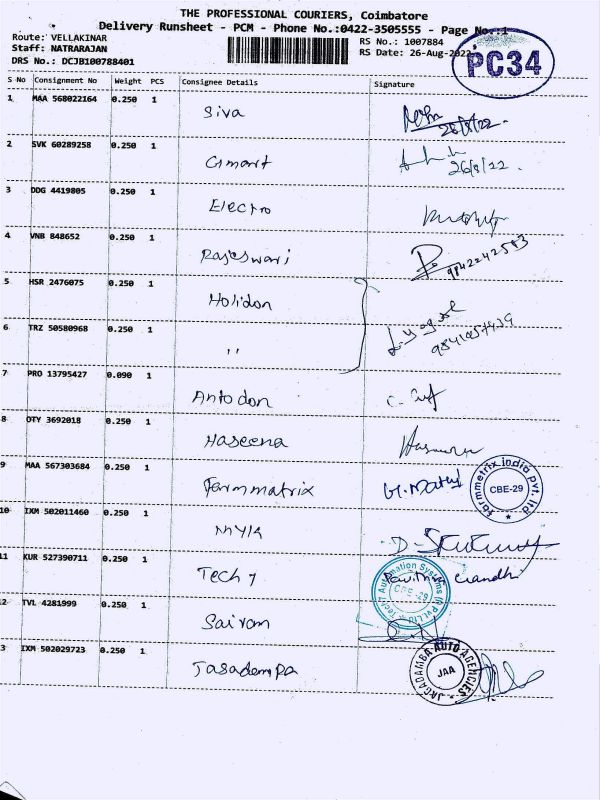 THE PROFESSIONAL COURIERS, Coimbatore
Delivery Runsheet - PCM - Phone No.:0422-3505555 - Page No.:1
Route: VELLAKINAR
Staff: NATRARAJAN
DRS No.: DCJB100788401
RS No.: 1007884
RS Date: 26-Aug-2022
PC34
S No Consignment No Weight PCS Consignee Details Signature
1 MAA 568022164 0.250 1 Siva 26/8/22.
2 SVK 60289258 0.250 1 Cimart 26/8/22.
3 DDG 4419805 0.250 1 Electro
4 VNB 848652 0.250 1 Rajeswari 9842242583
5 HSR 2476075 0.250 1 Holidon
6 TRZ 50580968 0.250 1 ,,
7 PRO 13795427 0.090 1 Antodon
8 OTY 3692018 0.250 1 Haseena
9 MAA 567303684 0.250 1 Farmmatrix
farmmetrix india pvt. ltd. CBE-29
10 IXM 502011460 0.250 1 Myla
11 KUR 527390711 0.250 1 Tech 7
Tech7 Automation Systems (I) Pvt Ltd CBE-29
12 TVL 4281999 0.250 1 Sairam
13 IXM 502029723 0.250 1 Jagadempa
JAGADAMBA AUTO AGENCIES JAA